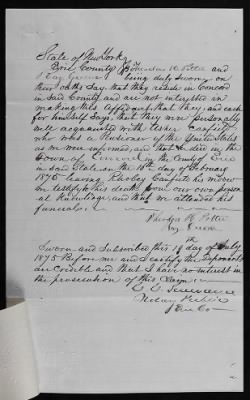 State of New York
Erie County SS Potter and
Ray Green being duly sworn on
their oath say, that they reside in Concord
in said County and are not interested in
making this affidavit, that they, and each
for himself says, that they were personally
well acquainted with Usher Canfield
who was a Pensioner of the United States
as we were informed, and that he died in the
town of Concord in the County of Erie
in said State on the day of February
1875 leaving Canfield his widow
we testify to his death from our own person
al Knowledge, and that we attended his
funeral
Potter
Ray Green
Sworn and Subscribed this 19th day of July
1875 Before me and I certify the deponents
are credible and that I have no interest in
the prosecution of this Claim
C C Severance
Notary Public
Erie Co